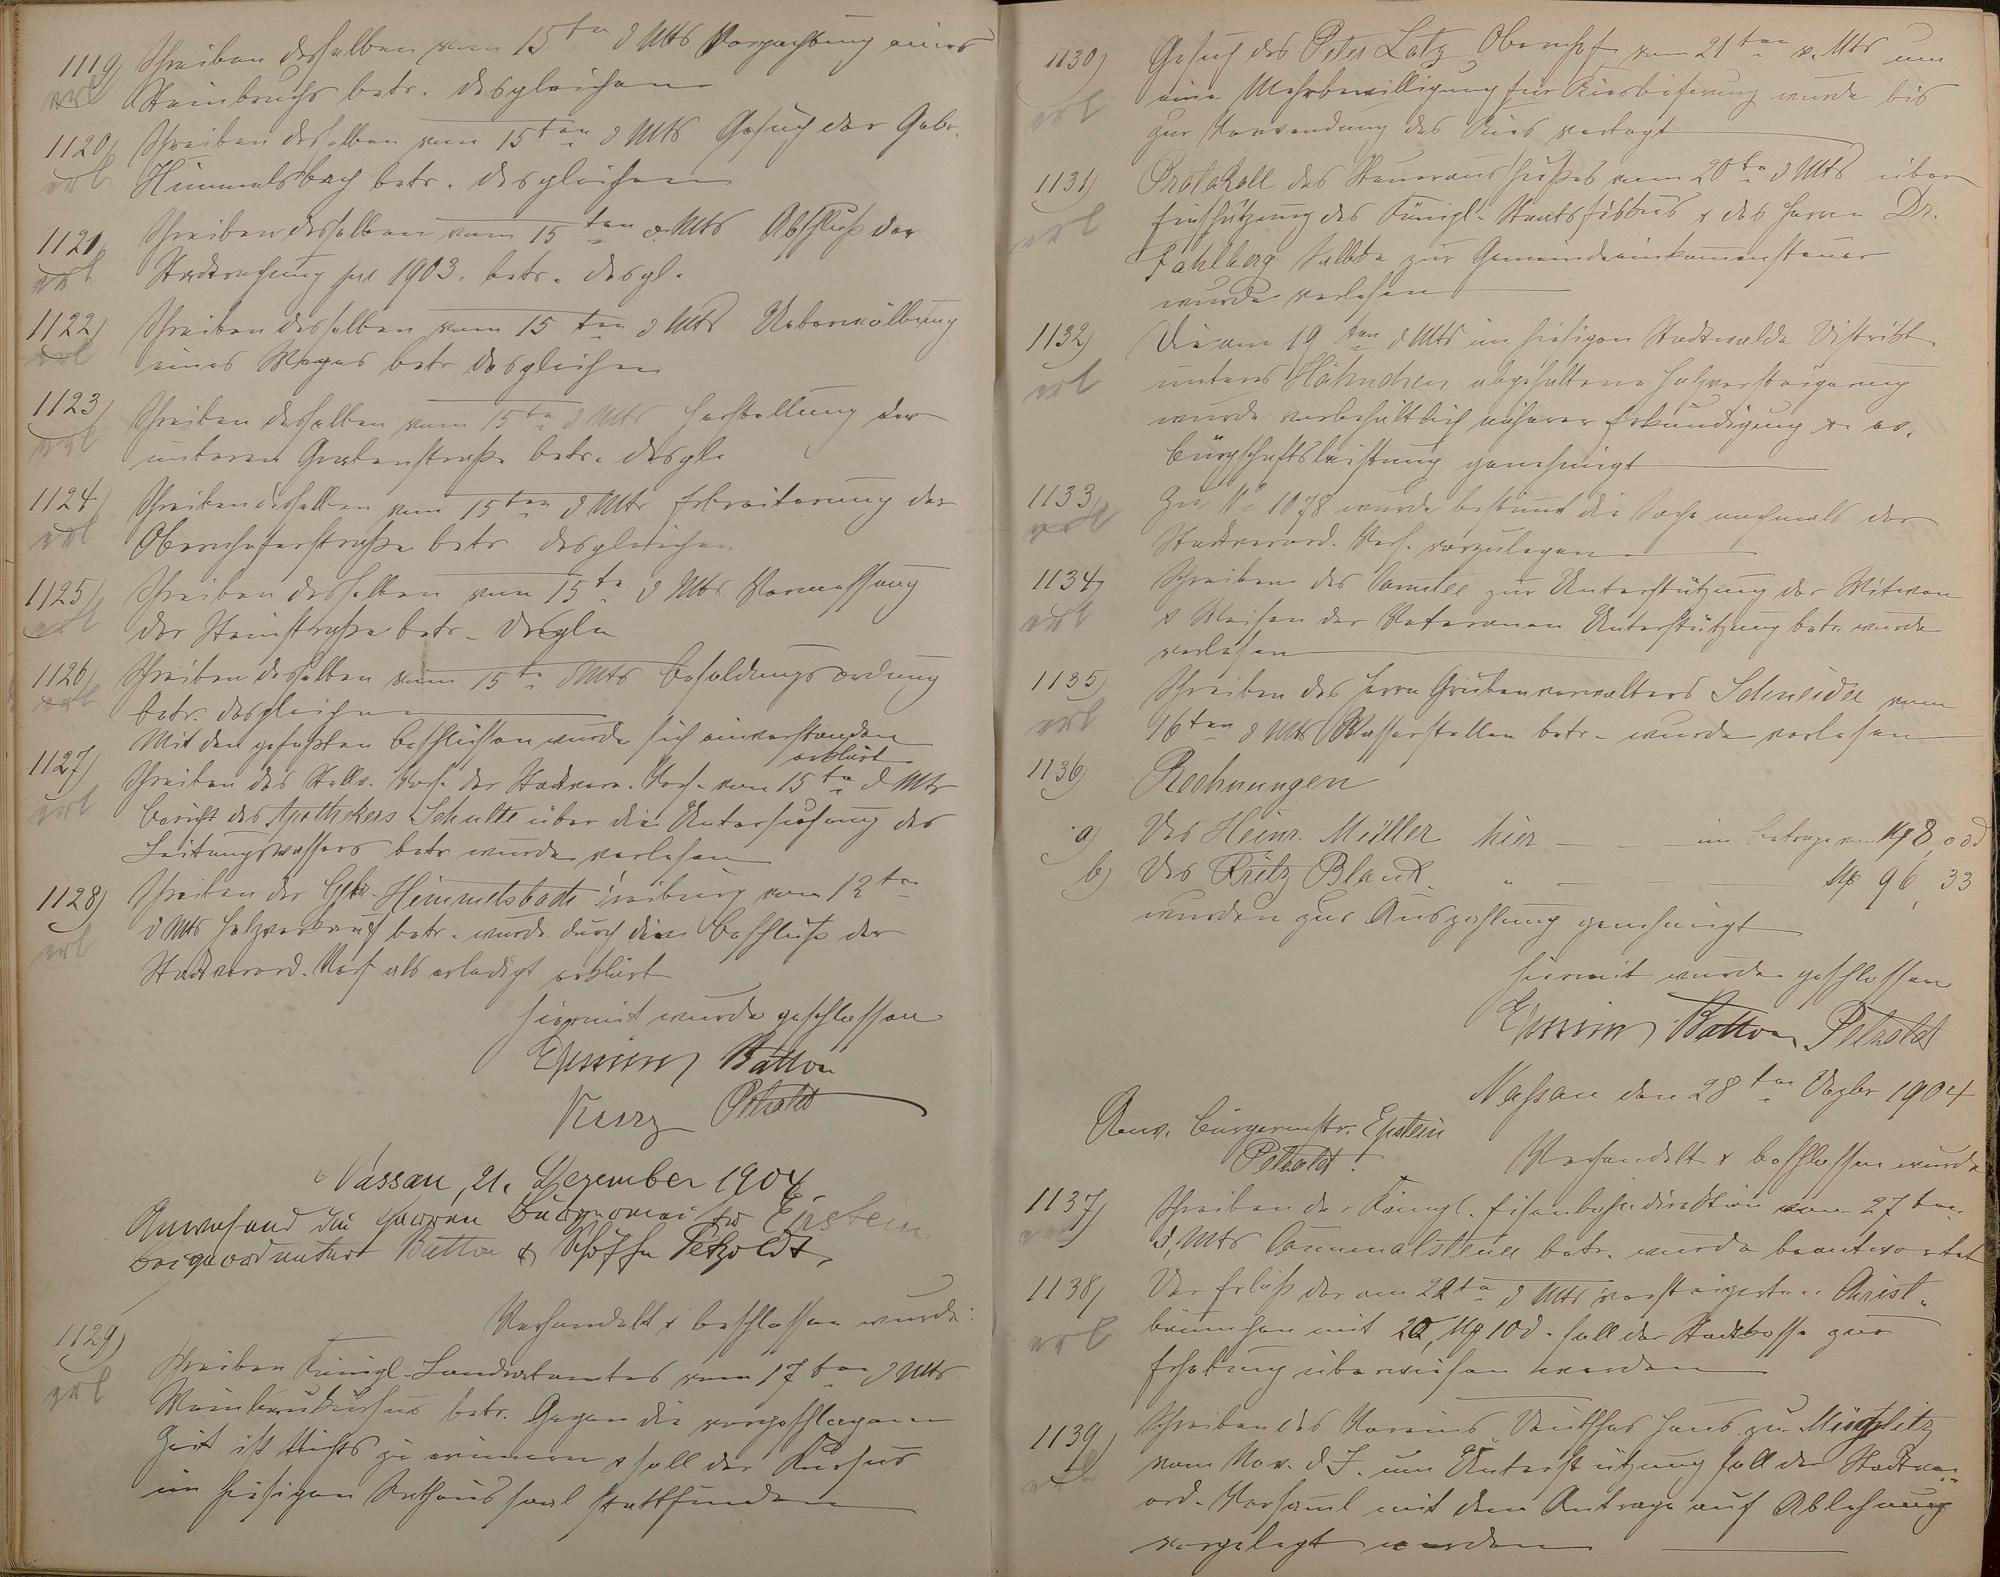 1119) Schreiben desselben vom 15ten d Mts Verpachtung eines
erl Steinbruchs betr. desgleichen
1120) Schreiben desselben vom 15ten d Mts Gesuch der Gebr.
erl Himmelsbach betr. desgleichen
1121) Schreiben desselben vom 15ten d. Mts Abschluß der
erl Stadtrechnung pro 1903. betr. desgl.
1122) Schreiben desselben vom 15ten d Mts Ueberwölbung
erl eines Weges betr desgleichen
1123) Schreiben desselben vom 15ten d Mts Herstellung der
erl unteren Grabenstraße betr. desgl.
1124) Schreiben desselben vom 15ten d Mts Erbreiterung der
erl Obernhoferstraße betr desgleichen
1125) Schreiben desselben vom 15ten d Mts Vermessung
erl der Steinstraße betr. desgln
1126) Schreiben desselben vom 15ten d Mts Besoldungsordnung
erl betr. desgleichen
Mit den gefaßten Beschlüssen wurde sich einverstanden
erklärt
1127) Schreiben des Stellv. Vors. der Stadtverord. Vers. vom 15ten d Mts
erl Bericht des Apothekers Schulte über die Untersuchung des
Leitungswassers betr wurde verlesen
1128) Schreiben der Gebr. Himmelsbach Freiburg vom 12ten
erl d Mts Holzverkauf betr. wurde durch den Beschluß der
Stadtverord. Vers als erledigt erklärt
Hiermit wurde geschlossen
Epstein Batton
Kurz Petzoldt
Nassau, 21. Dezember 1904.
Anwesend die Herren Bürgermeister Epstein
Beigeordneter Batton & Schöffe Petzoldt,
Verhandelt & beschlossen wurde:
1129) Schreiben Königl. Landratamtes vom 17ten d Mts
erl Weinbaukursus betr. Gegen die vorgeschlagene
Zeit ist Nichts zu erinnern & soll der Kursus
im hiesigen Rathaussaal stattfinden
1130) Gesuch des Peter Lotz Obernhof vom 21ten v. Mts um
erl eine Mehrbewilligung für Kieslieferung wurde bis
zur Verwendung des Kies vertagt
1131) Protokoll des Steuerausschußes vom 20ten d Mts über
erl Einschätzung des Königl. Staatsfiskus & des Herrn Dr.
Fahlberg Salbke zur Gemeindeeinkommensteuer
wurde verlesen
1132) Die am 19ten d Mts im hiesigen Stadtwalde Distrikt
erl unteres Hähnchen abgehaltene Holzversteigerung
wurde vorbehaltlich näherer Erkundigung & ev.
Bürgschaftsleistung genehmigt
1133) Zu No 1078 wurde bestimmt die Sache nochmals der
erl Stadtverord. Vers. vorzulegen
1134) Schreiben des Comitee zur Unterstützung der Witwen
erl & Waisen der Veteranen Unterstützung betr. wurde
verlesen
1135) Schreiben des Herrn Grubenverwalters Schneider vom
erl 16ten d Mts Wasserstollen betr. wurde verlesen
1136) Rechnungen
a) Des Heinr. Müller hier – – im Betrage von M 8,00 d
b) Des Fritz Blank " – – M 96,33
wurden zur Auszahlung genehmigt
Hiermit wurde geschlossen
Epstein Batton Petzoldt
Nassau den 28ten Dezbr 1904
Anw. Bürgermstr. Epstein
Petzoldt
Verhandelt & beschlossen wurde
1137) Schreiben der Königl. Eisenbahndirektion vom 27ten
d. Mts betr. wurde beantwortet
1138) Der Erlös der am 22ten d Mts versteigerten Christ-
erl bäumchen mit 20 M 10 d. soll der Stadtkasse zur
Erhebung überwiesen werden
1139) Schreiben des Vereins Deutsches Haus zu
erl vom Nov. d J. um Unterstützung soll der Stadtver-
ord. Versaml mit dem Antrage auf Ablehnung
vorgelegt werden